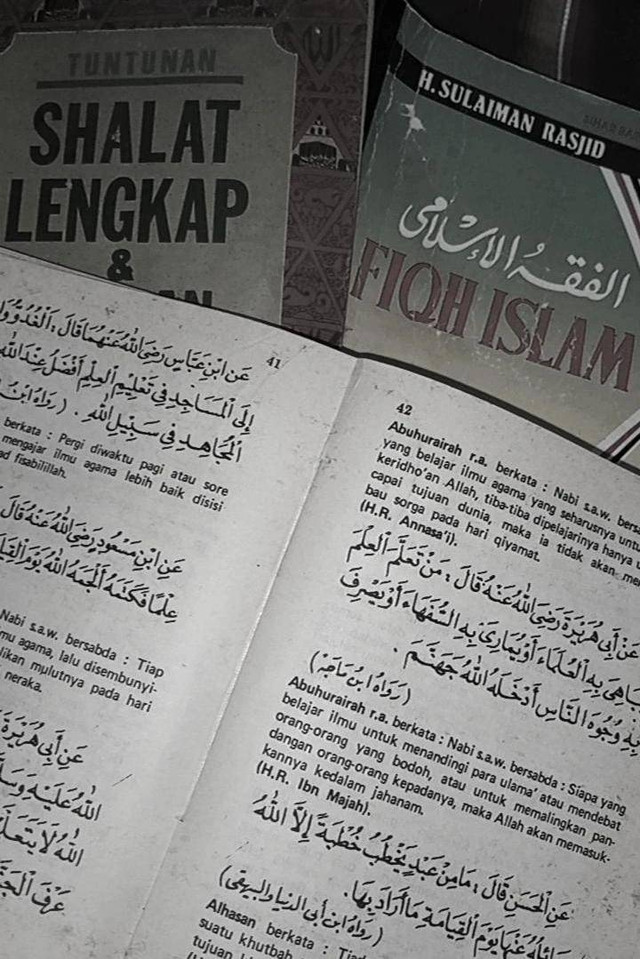 TUNTUNAN
SHALAT
LENGKAP
&
H. SULAIMAN RASJID
الفقه الإسلامي
FIQH ISLAM
41
عَنِ ابْنِ عَبَّاسٍ رَضِيَ اللهُ عَنْهُمَا قَالَ : اَلْغُدُوُّ
إِلَى الْمَسَاجِدِ فِي تَعْلِيْمِ الْعِلْمِ أَفْضَلُ عِنْدَ اللهِ
الْمُجَاهِدِ فِي سَبِيْلِ اللهِ . (رَوَاهُ ابْنُ
berkata : Pergi diwaktu pagi atau sore
mengajar ilmu agama lebih baik disisi
fisabilillah.
عَنِ ابْنِ مَسْعُوْدٍ رَضِيَ اللهُ عَنْهُ قَالَ
عِلْمًا فَكَتَمَهُ أَلْجَمَهُ اللهُ يَوْمَ
Nabi s.a.w. bersabda : Tiap
ilmu agama, lalu disembunyi-
mulutnya pada hari
neraka.
عَنْ أَبِي هُرَيْرَةَ
اللهُ عَلَيْهِ
اللهُ لَا
عَرْفَ
42
Abuhurairah r.a. berkata : Nabi s.a.w.
yang belajar ilmu agama yang seharusnya
keridho'an Allah, tiba-tiba dipelajarinya hanya
capai tujuan dunia, maka ia tidak akan
bau sorga pada hari qiyamat.
(H.R. Annasa'i).
عَنْ أَبِي هُرَيْرَةَ رَضِيَ اللهُ عَنْهُ قَالَ : مَنْ تَعَلَّمَ الْعِلْمَ
بِهِ الْعُلَمَاءَ أَوْ يُمَارِيَ بِهِ السُّفَهَاءَ أَوْ يَصْرِفَ
بِهِ وُجُوْهَ النَّاسِ أَدْخَلَهُ اللهُ جَهَنَّمَ .
(رَوَاهُ ابْنُ مَاجَهْ)
Abuhurairah r.a. berkata : Nabi s.a.w. bersabda : Siapa yang
belajar ilmu untuk menandingi para ulama' atau mendebat
orang-orang yang bodoh, atau untuk memalingkan pan-
dangan orang-orang kepadanya, maka Allah akan memasuk-
kannya kedalam jahanam.
(H.R. Ibn Majah).
عَنِ الْحَسَنِ قَالَ : مَا مِنْ عَبْدٍ يَخْطُبُ خُطْبَةً إِلَّا اللهُ
عَنْهَا يَوْمَ الْقِيَامَةِ مَا أَرَادَ بِهَا .
(رَوَاهُ ابْنُ أَبِي الدُّنْيَا وَالْبَيْهَقِي)
Alhasan berkata :
suatu khutbah
tujuan